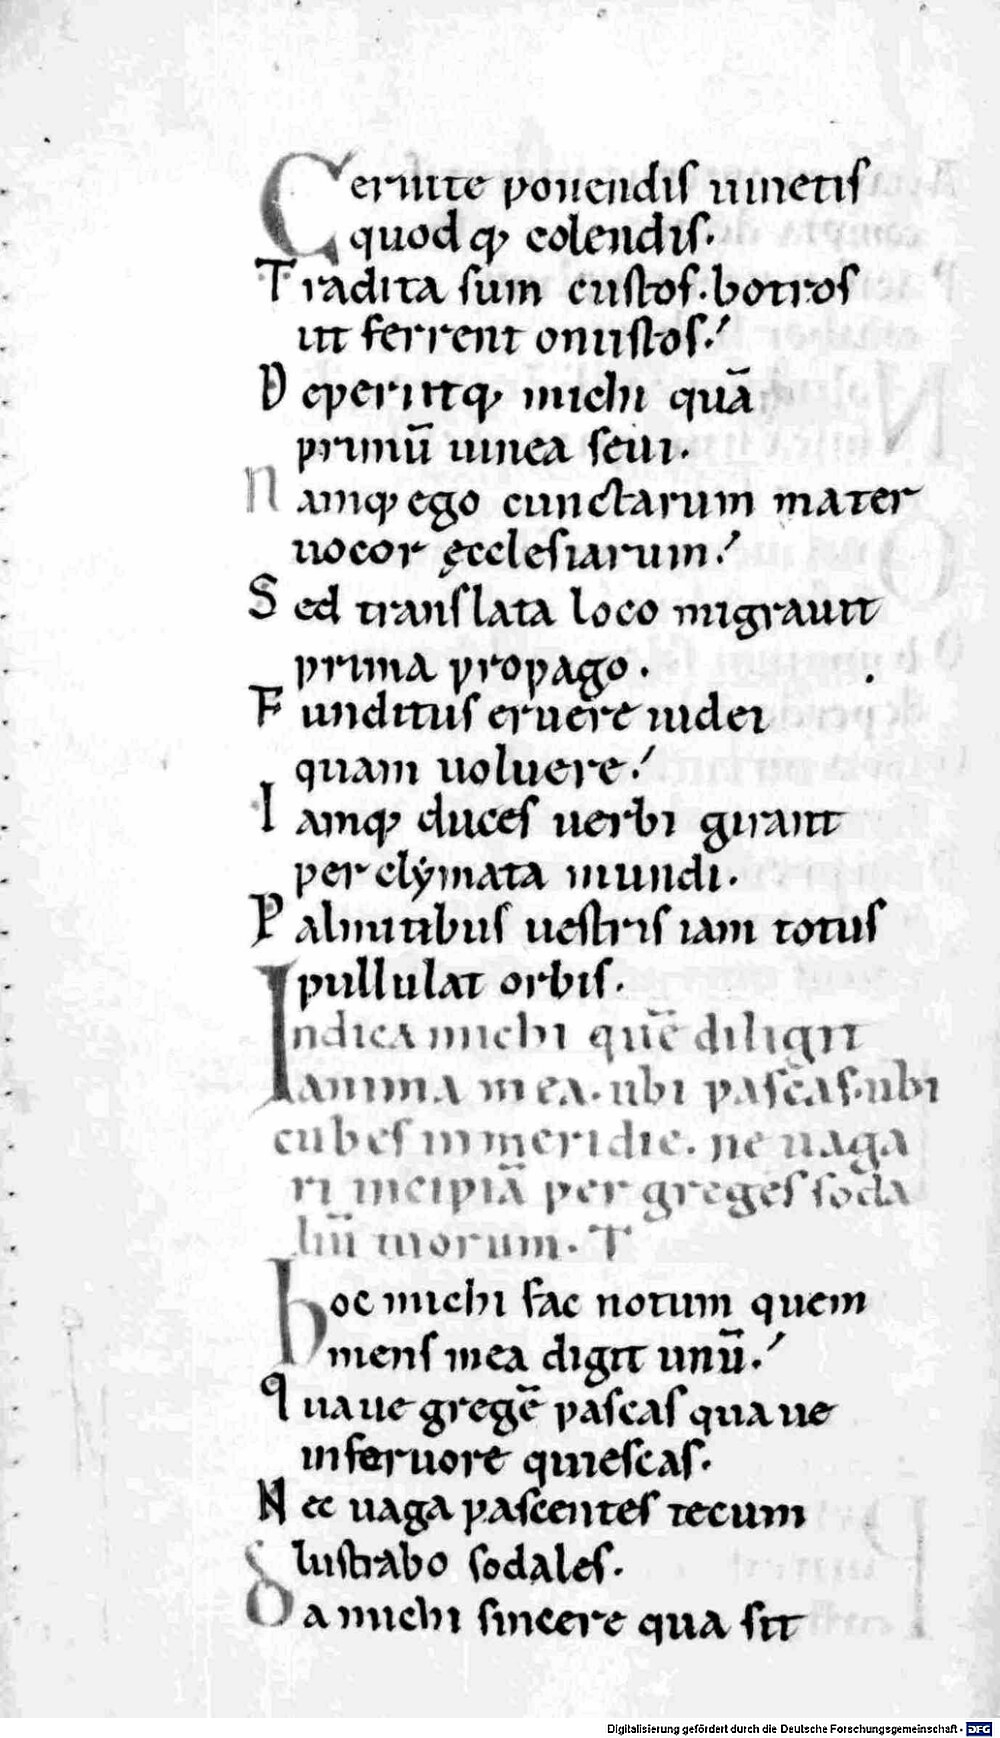 Cernite ponendis uinetis
quod q; colendis.
Tradita sum custos. botros
ut ferrent onustos.
Deperiitq; michi quā
primū uinea seui.
Namq; ego cunctarum mater
uocor ęcclesiarum.
Sed translata loco migrauit
prima propago.
Funditus eruere iudei
quam uoluere.
Iamq; duces uerbi girant
per clẏmata mundi.
Palmitibus uestris iam totus
pullulat orbis.
Indica michi quē diligit
anima mea. ubi pascas. ubi
cubes in meridie. ne uaga
ri incipiā per greges soda
liū tuorum. T
hoc michi fac notum quem
mens mea digit unū.
Quaue gregē pascas qua ue
in feruore quiescas.
Nec uaga pascentes tecum
lustrabo sodales.
Da michi sincere qua sit
Digitalisierung gefördert durch die Deutsche Forschungsgemeinschaft - DFG